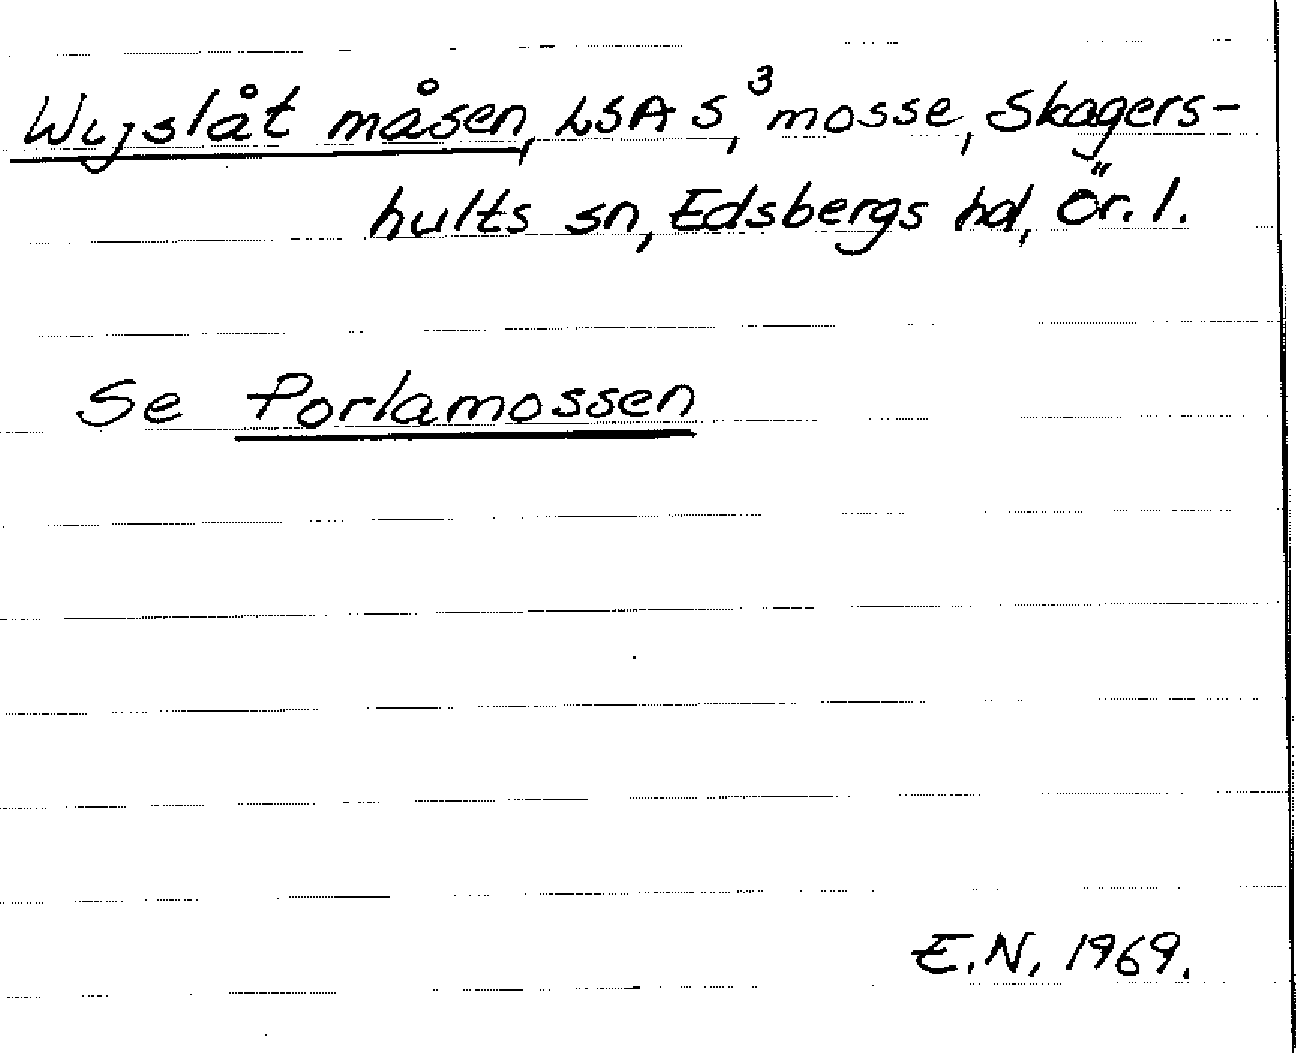 Wijslåt måsen, LSA S,³ mosse, Skagers-
hults sn, Edsbergs hd, Ör. l.
Se Porlamossen
E.N, 1969.